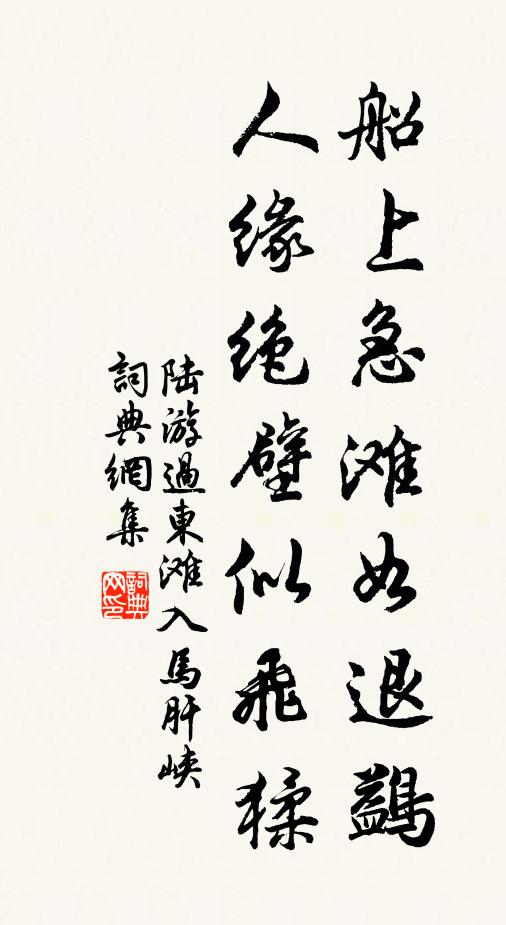 船上急滩如退鷁
人缘绝壁似飛猱
陆游過東滩入馬肝峡
詞典網集
詞典网印